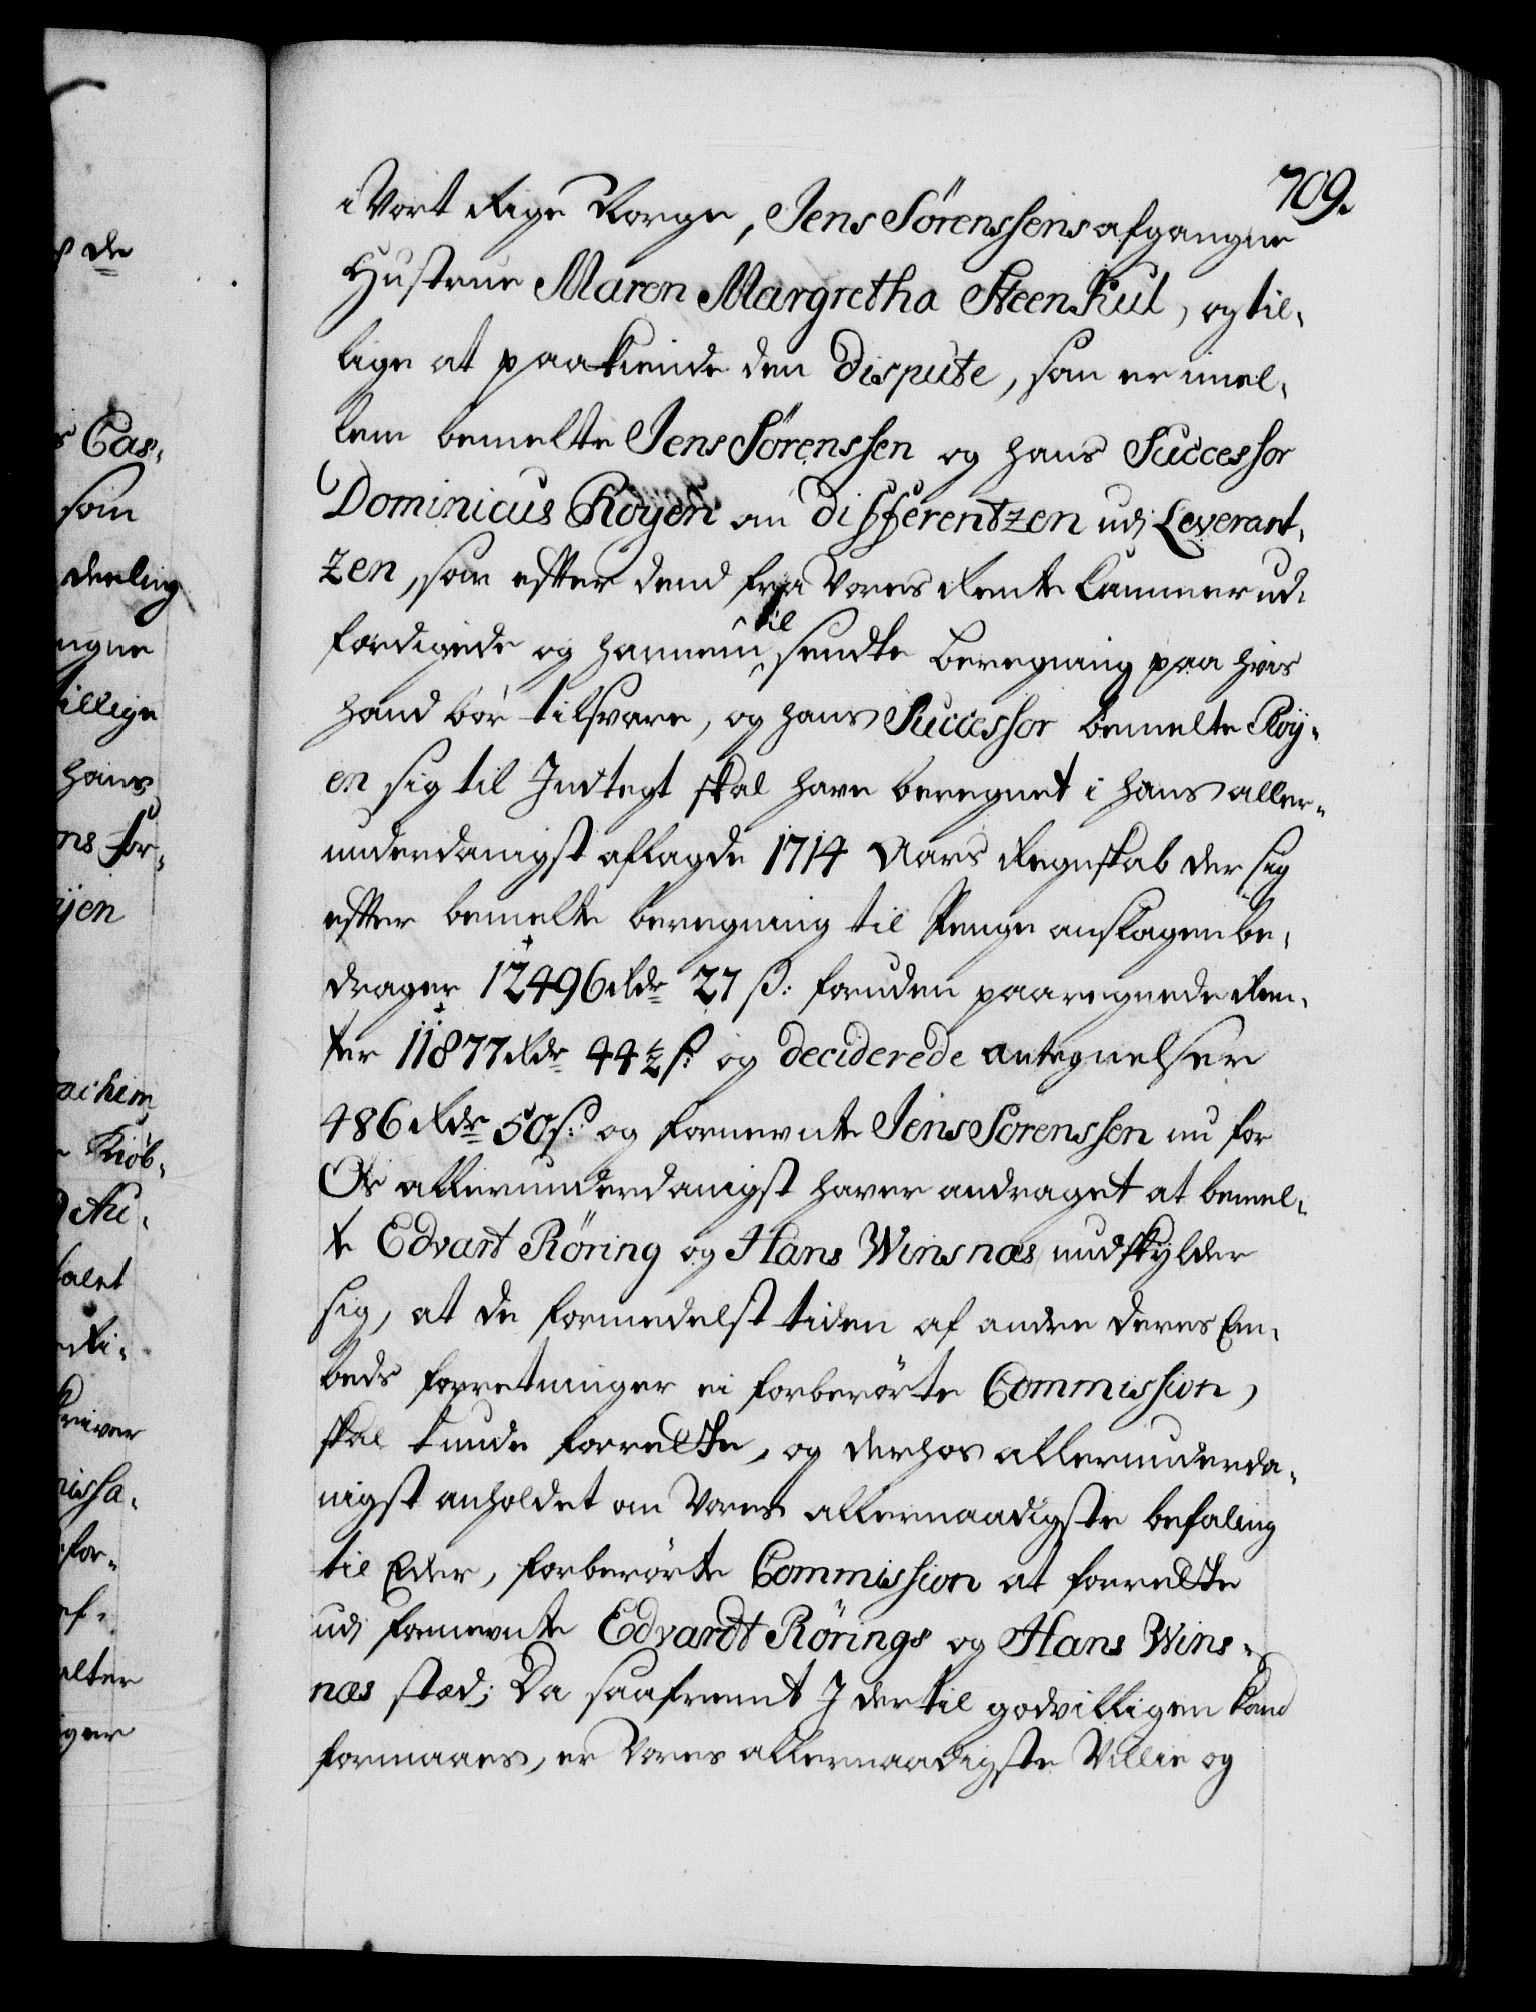 709.
i Vort Rige Norge, Jens Sørenssens afgangne
Hustrue Maren Margretha Steenkul, og til-
lige at paakiende den Dispute, som er imel-
lem bemelte Jens Sørenssen og hans Successor
Dominicus Røyen om differentzen udj Leverant-
zen, som efter dend fra Vores Rente Cammer ud-
færdigede og hannem til sendte beregning paa hvis
hand bør tilsvare, og hans Successor bemelte Røy-
en sig til Indtegt skal have beregnet i hans aller-
underdanigst aflagde 1714 Aars Regnskab der sig
efter bemelte beregning til Penge anslagen be-
drager 12496 Rdr 27 ß: foruden paaregnede Ren-
ter 11877 Rdr 44 1/2 ß: og deciderede antegnelser
486 Rdr 50 ß: og fornevnte Jens Sørenssen nu for
Os allerunderdanigst haver andraget at bemel-
te Edvart Röring og Hans Winsnæs undskylder
sig, at de formedelst tiden af andre deres Em-
beds forretninger ei forberørte Commission,
skal kunde forrette, og derhos allerunderda-
nigst anholdet om Vores allernaadigste befaling
til Eder, forberørte Commission at forrette
udj fornevnte Edvardt Rörings og Hans Wins-
næs stæd; Da saafremt J dertil godvilligen kand
formaaes, er Vores allernaadigste Villie og